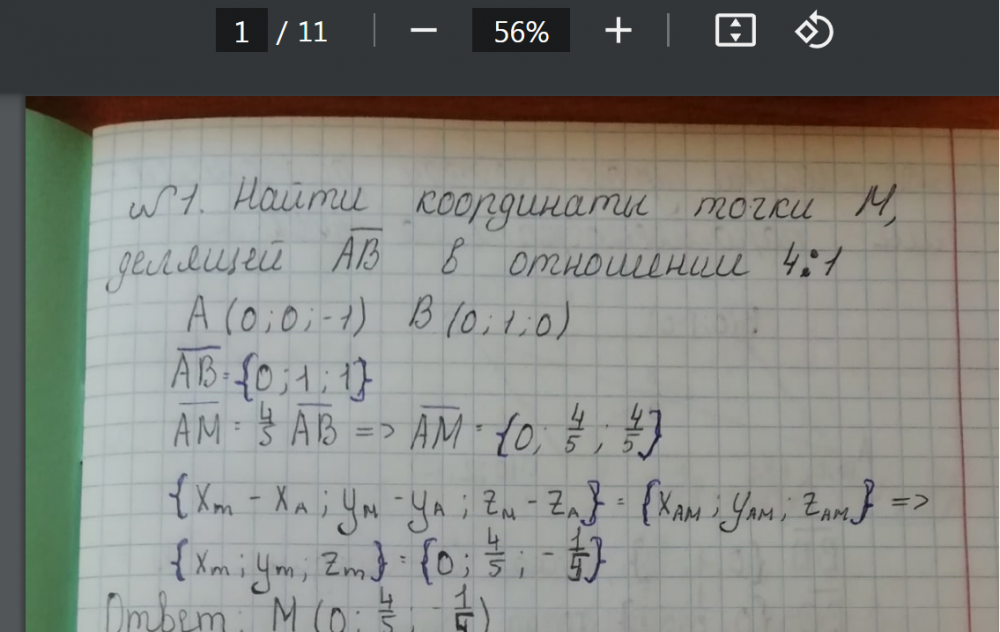 1 / 11 — 56% +
№1. Найти координаты точки М,
делящей A̅B̅ в отношении 4:1
A (0; 0; -1) B (0; 1; 0)
A̅B̅ = {0; 1; 1}
A̅M̅ = 4/5 A̅B̅ => A̅M̅ = {0; 4/5; 4/5}
{Xm - XA; yM - yA; ZM - ZA} = {XAM; yAM; ZAM} =>
{Xm; ym; Zm} = {0; 4/5; - 1/5}
Ответ: M (0; 4/5; - 1/